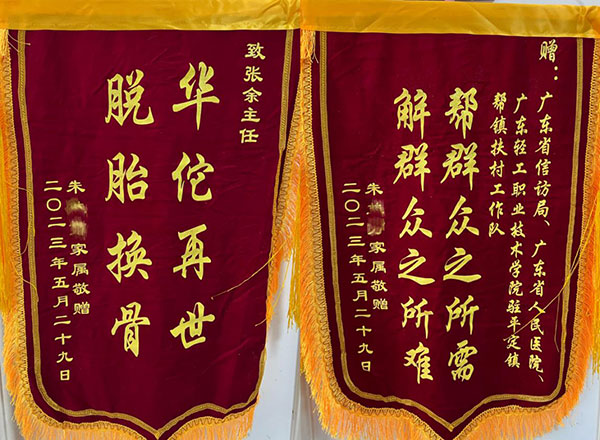 致张余主任
华佗再世
脱胎换骨
朱 家属敬赠
二〇二三年五月二十九日
赠：广东省信访局、广东省人民医院、
广东轻工职业技术学院驻平定镇
帮镇扶村工作队
帮群众之所需
解群众之所难
朱 家属敬赠
二〇二三年五月二十九日